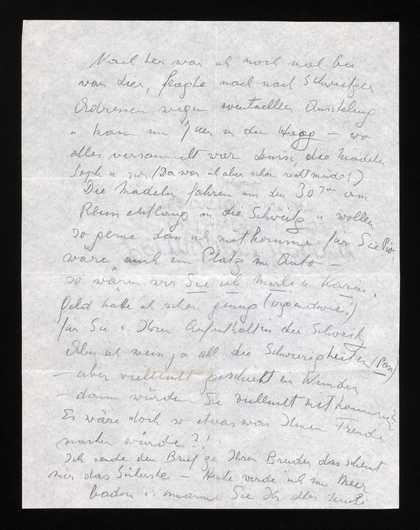 Nachher war ich noch mal bei
van dier, fragte nach nach Schweizer
Adressen wegen eventueller Ausstellung
u kam um 7 Uhr in den Haag – wo
alles versammelt war denn, die Mädeln
(Da war ich aber schon recht müde!)
Die Mädeln fahren um den 30ten am
Rhein entlang in die Schweitz u wollen
so gerne dass ich mitkomme für Sie
wäre auch ein Platz im Auto –
so wären wir Sie ich u Karin,
Geld hätte ich schon genug (irgendwie)
für Sie u Ihren Aufenthalt in der Schweiz
Aber ich weiss ja all die Schwierigkeiten (Pass)
– aber vielleicht geschieht ein Wunder
– dann würden Sie vielleicht mitkommen
Es wäre doch so etwas was Ihnen Freude
machen würde?!
Ich sende den Brief an Ihren Bruder das scheint
mir das Sicherste – Heute werde ich im Meer
baden u Sie